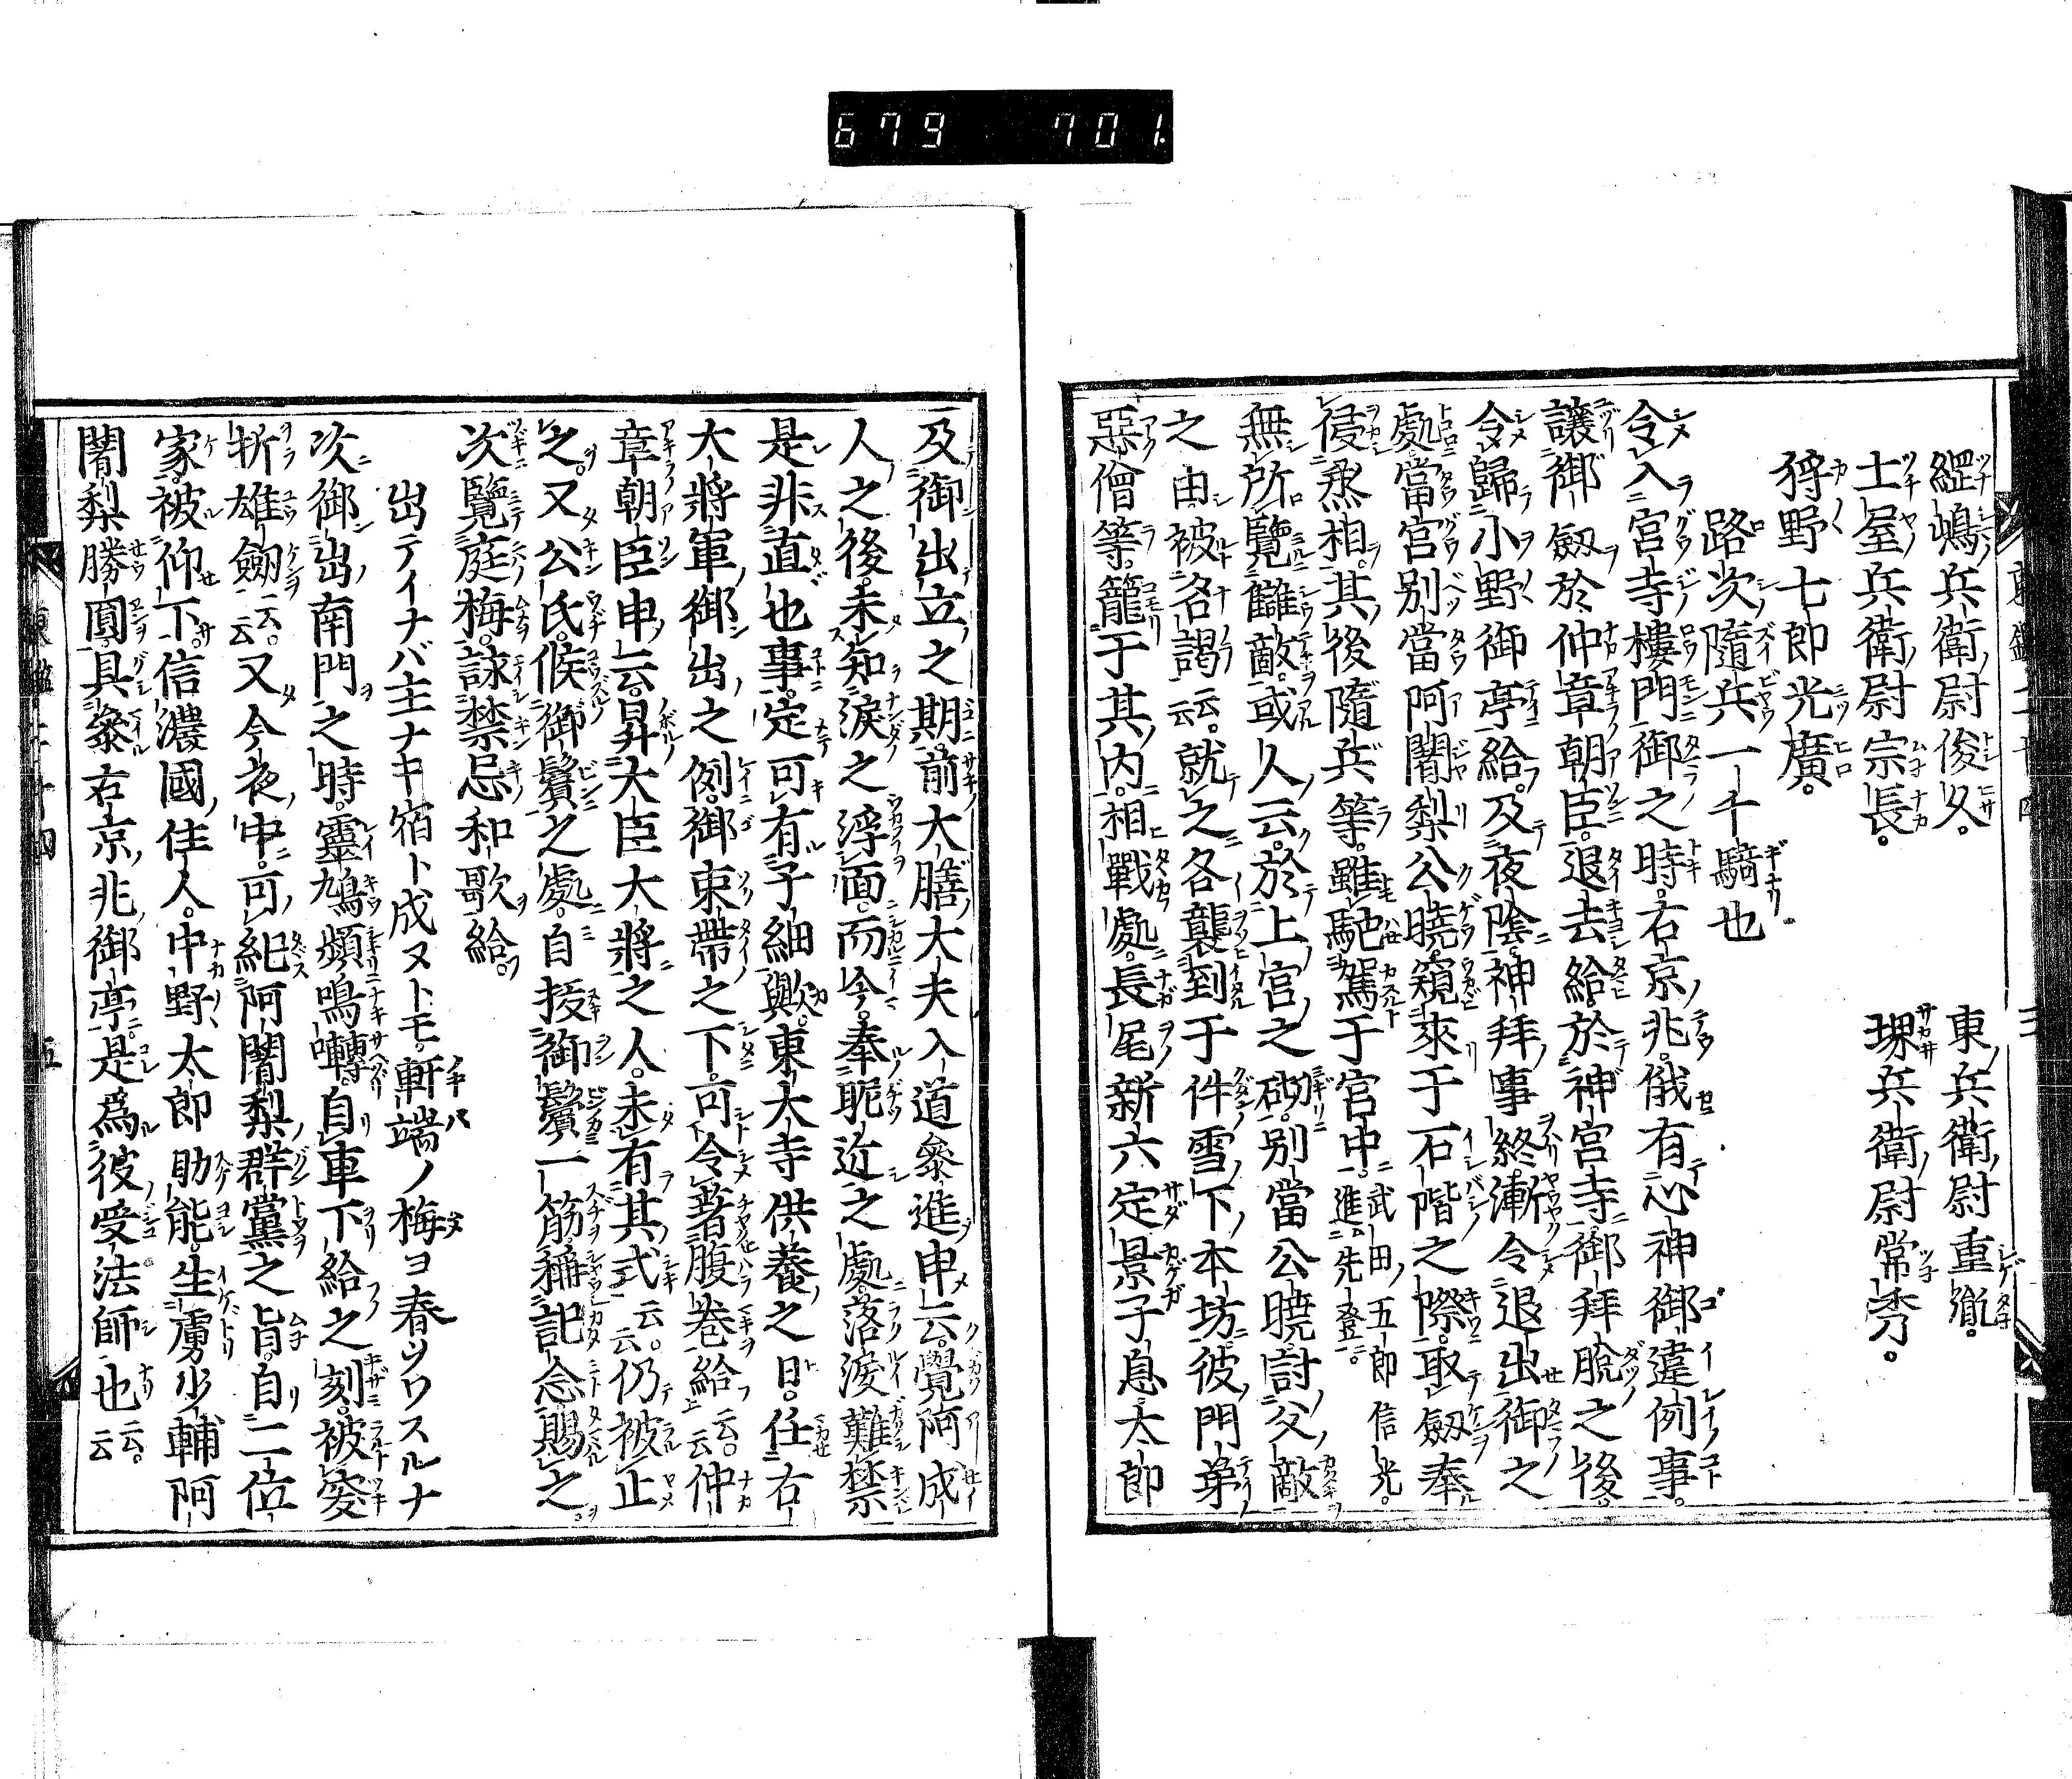 679 701.
綑嶋兵衛尉俊久。 東兵衛尉重胤。
土屋兵衛尉宗長。 堺兵衛尉常秀。
狩野七郎光廣。
路次隨兵一千騎也
令入宮寺樓門御之時。右京兆。俄有心神御違例事。
讓御劔於仲章朝臣。退去給。於神宮寺。御拜脫之後。
令歸小野御亭給。及夜陰。神拜事終。漸令退出御之
處。當宮別當阿闍梨公曉。窺來于石階之際。取劔奉
侵丞相。其後隨兵等。雖馳駕于宮中。武田五郎信光。進先登。
無所覽讎敵。或人云。於上宮之砌。別當公曉討父敵
之由。被名謁云云。就之各襲到于件雪下本坊。彼門弟
惡僧等。籠于其內。相戰處。長尾新六定景子息。太郎
及御出立之期。前大膳大夫入道參進申云。覺阿成
人之後。未知淚之浮面。而今。奉昵近之處。落淚難禁
是非直也事。定可有子細歟。東大寺供養之日。任右
大將軍御出之例。御束帶之下。可令著腹卷給云云。仲
章朝臣申云。昇大臣大將之人。未有其式云云。仍被止
之。又公氏。候御鬢之處。自拔御鬢一筋。稱記念賜之。
次覽庭梅。詠禁忌和歌給。
出テイナバ主ナキ宿ト成ヌトモ。軒端ノ梅ヨ春ヲワスルナ
次御出南門之時。靈鳩頻鳴囀。自車下給之刻。被突
折雄劔云云。又今夜中。可糺阿闍梨群黨之旨。自二位
家。被仰下。信濃國住人。中野太郎助能。生虜少輔阿
闍梨勝圓。具參右京兆御亭。是爲彼受法師也云云。